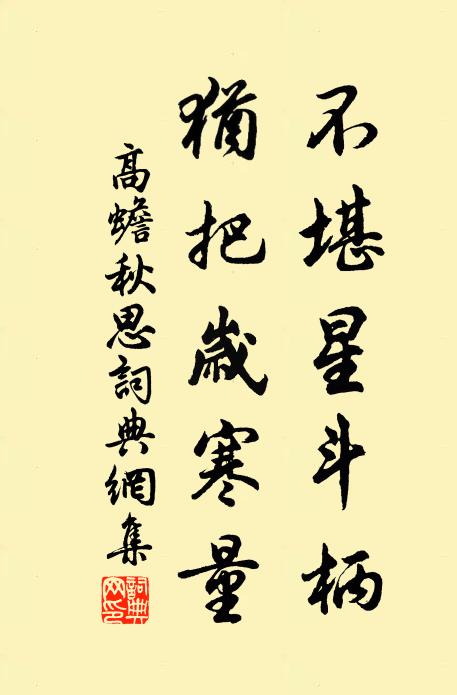 不堪星斗柄
猶把歲寒量
高蟾秋思詞典網集
詞典網印